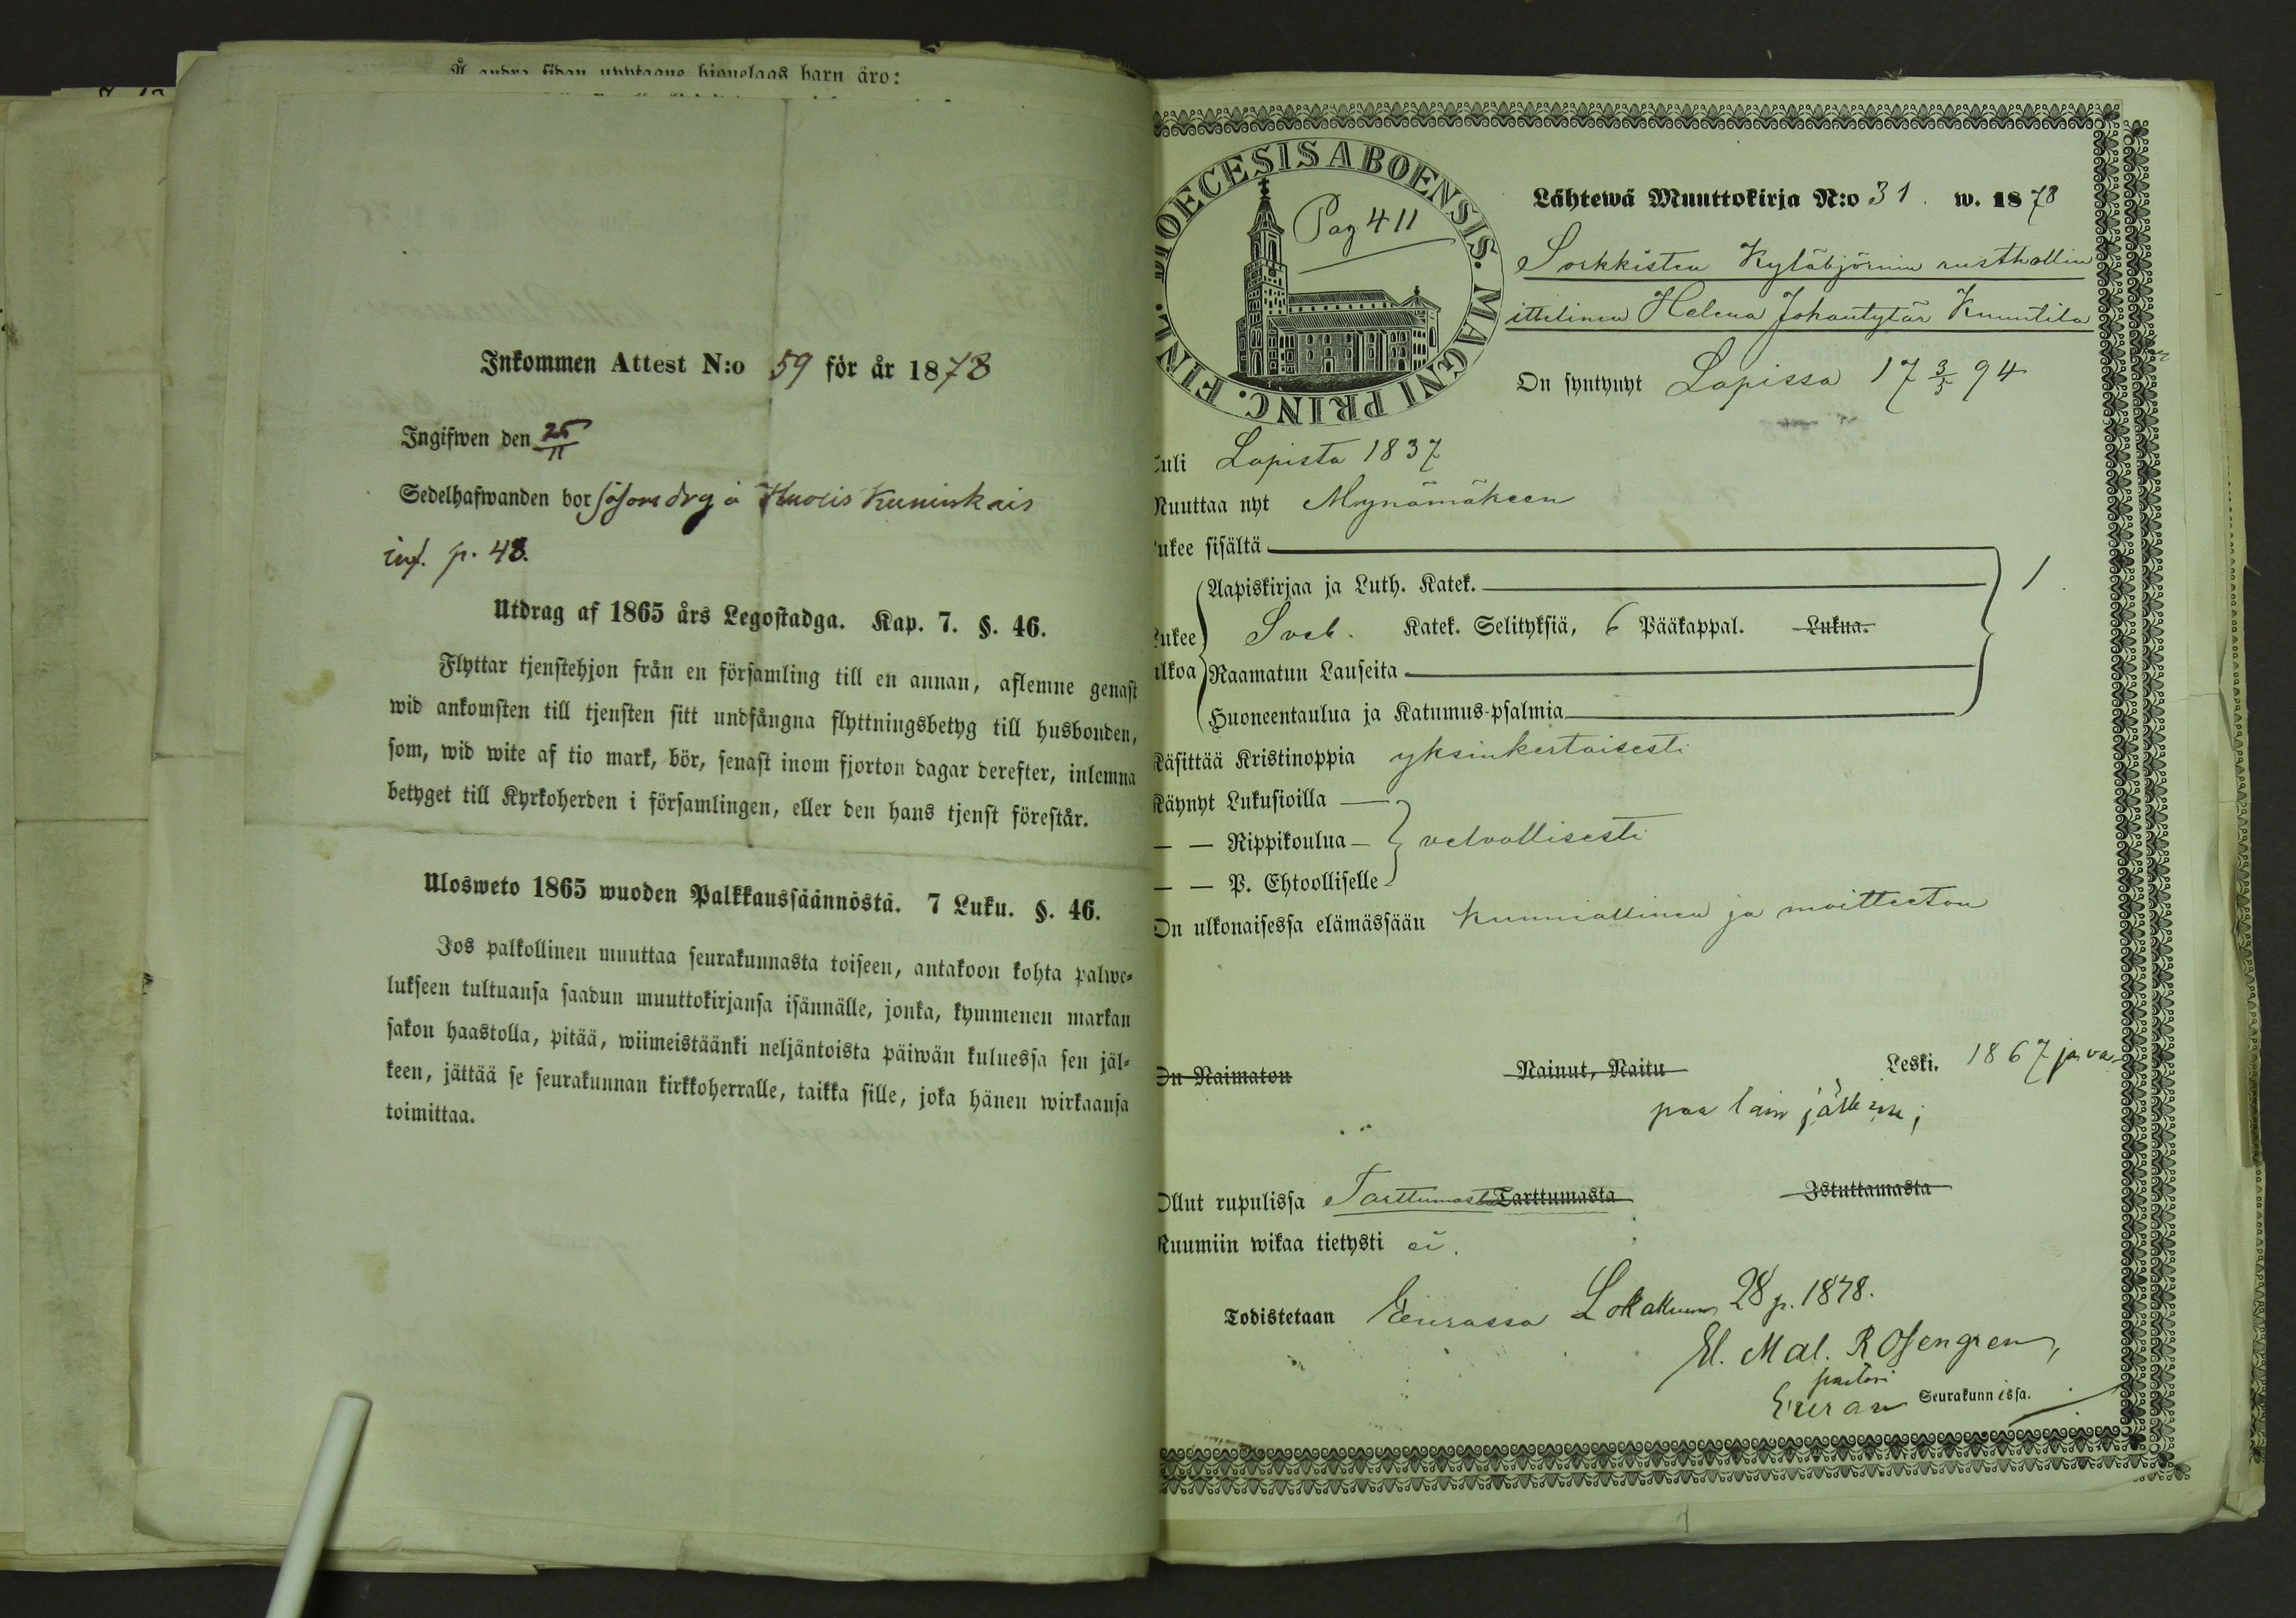 Å andra sidan upptagne hionelags barn äro:
Inkommen Attest N:o 59 för år 1878
Ingifwen den 25/11
Sedelhafwanden bor såsom drg å Kuninkais
inf. p. 48.
Utdrag af 1865 års Legostadga. Kap. 7. §. 46.
Flyttar tjenstehjon från en församling till en annan, aflemne genast
wid ankomsten till tjensten sitt undfångna flyttningsbetyg till husbonden,
som, wid wite af tio mark, bör, senast inom fjorton dagar derefter, inlemna
betyget till Kyrkoherden i församlingen, eller den hans tjenst förestår.
Ulosweto 1865 wuoden Palkkaussäännöstä. 7 Luku. §. 46.
Jos palkollinen muuttaa seurakunnasta toiseen, antakoon kohta palwe-
lukseen tultuansa saadun muuttokirjansa isännälle, jonka, kymmenen markan
sakon haastolla, pitää, wiimeistäänki neljäntoista päiwän kuluessa sen jäl-
keen, jättää se seurakunnan kirkkoherralle, taikka sille, joka hänen wirkaansa
toimittaa.
DIOECESIS ABOENSIS. MAGNI PRINC. FINL.
Pag 411
Lähtewä Muuttokirja N:o 31. w. 1878
Sorkkisten Kyläbjörnin rusthollin
ittelinen Helena Johantytär Knuutila
On syntynyt Lapissa 17 3/5 94
Tuli Lapista 1837
Muuttaa nyt Mynämäkeen
Lukee sisältä
Aapiskirjaa ja Luth. Katek.
1
Lukee ulkoa
Sveb. Katek. Selityksiä, 6 Pääkappal. Lukua.
Raamatun Lauseita
Huoneentaulua ja Katumus-psalmia
Käsittää Kristinoppia yksinkertaisesti
Käynyt Lukusioilla
— — Rippikoulua — velvollisesti
— — P. Ehtoolliselle
On ulkonaisessa elämässään kunniallinen ja moitteeton
On Naimaton Nainut, Naitu Leski. 1867 ja va
paa lain jälkeen;
Ollut rupulissa Tarttumasta Tarttumasta Istuttamasta
Ruumiin wikaa tietysti ei.
Todistetaan Eurassa Lokakuun 28 p. 1878.
El. Mal. Rosengren,
pastori
Euran Seurakunnissa.